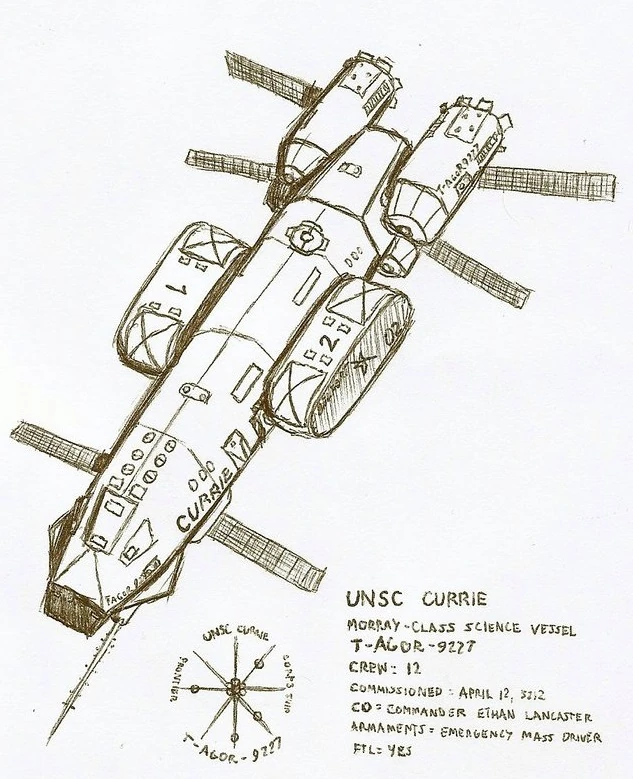 T-AGOR 9227
1
2
02
CURRIE
UNSC CURRIE
FRONTIER
T-AGOR-9227
UNSC CURRIE
MORRAY-CLASS SCIENCE VESSEL
T-AGOR-9227
CREW: 12
COMMISSIONED: APRIL 12,
CO: COMMANDER ETHAN LANCASTER
ARMAMENTS: EMERGENCY MASS DRIVER
FTL: YES